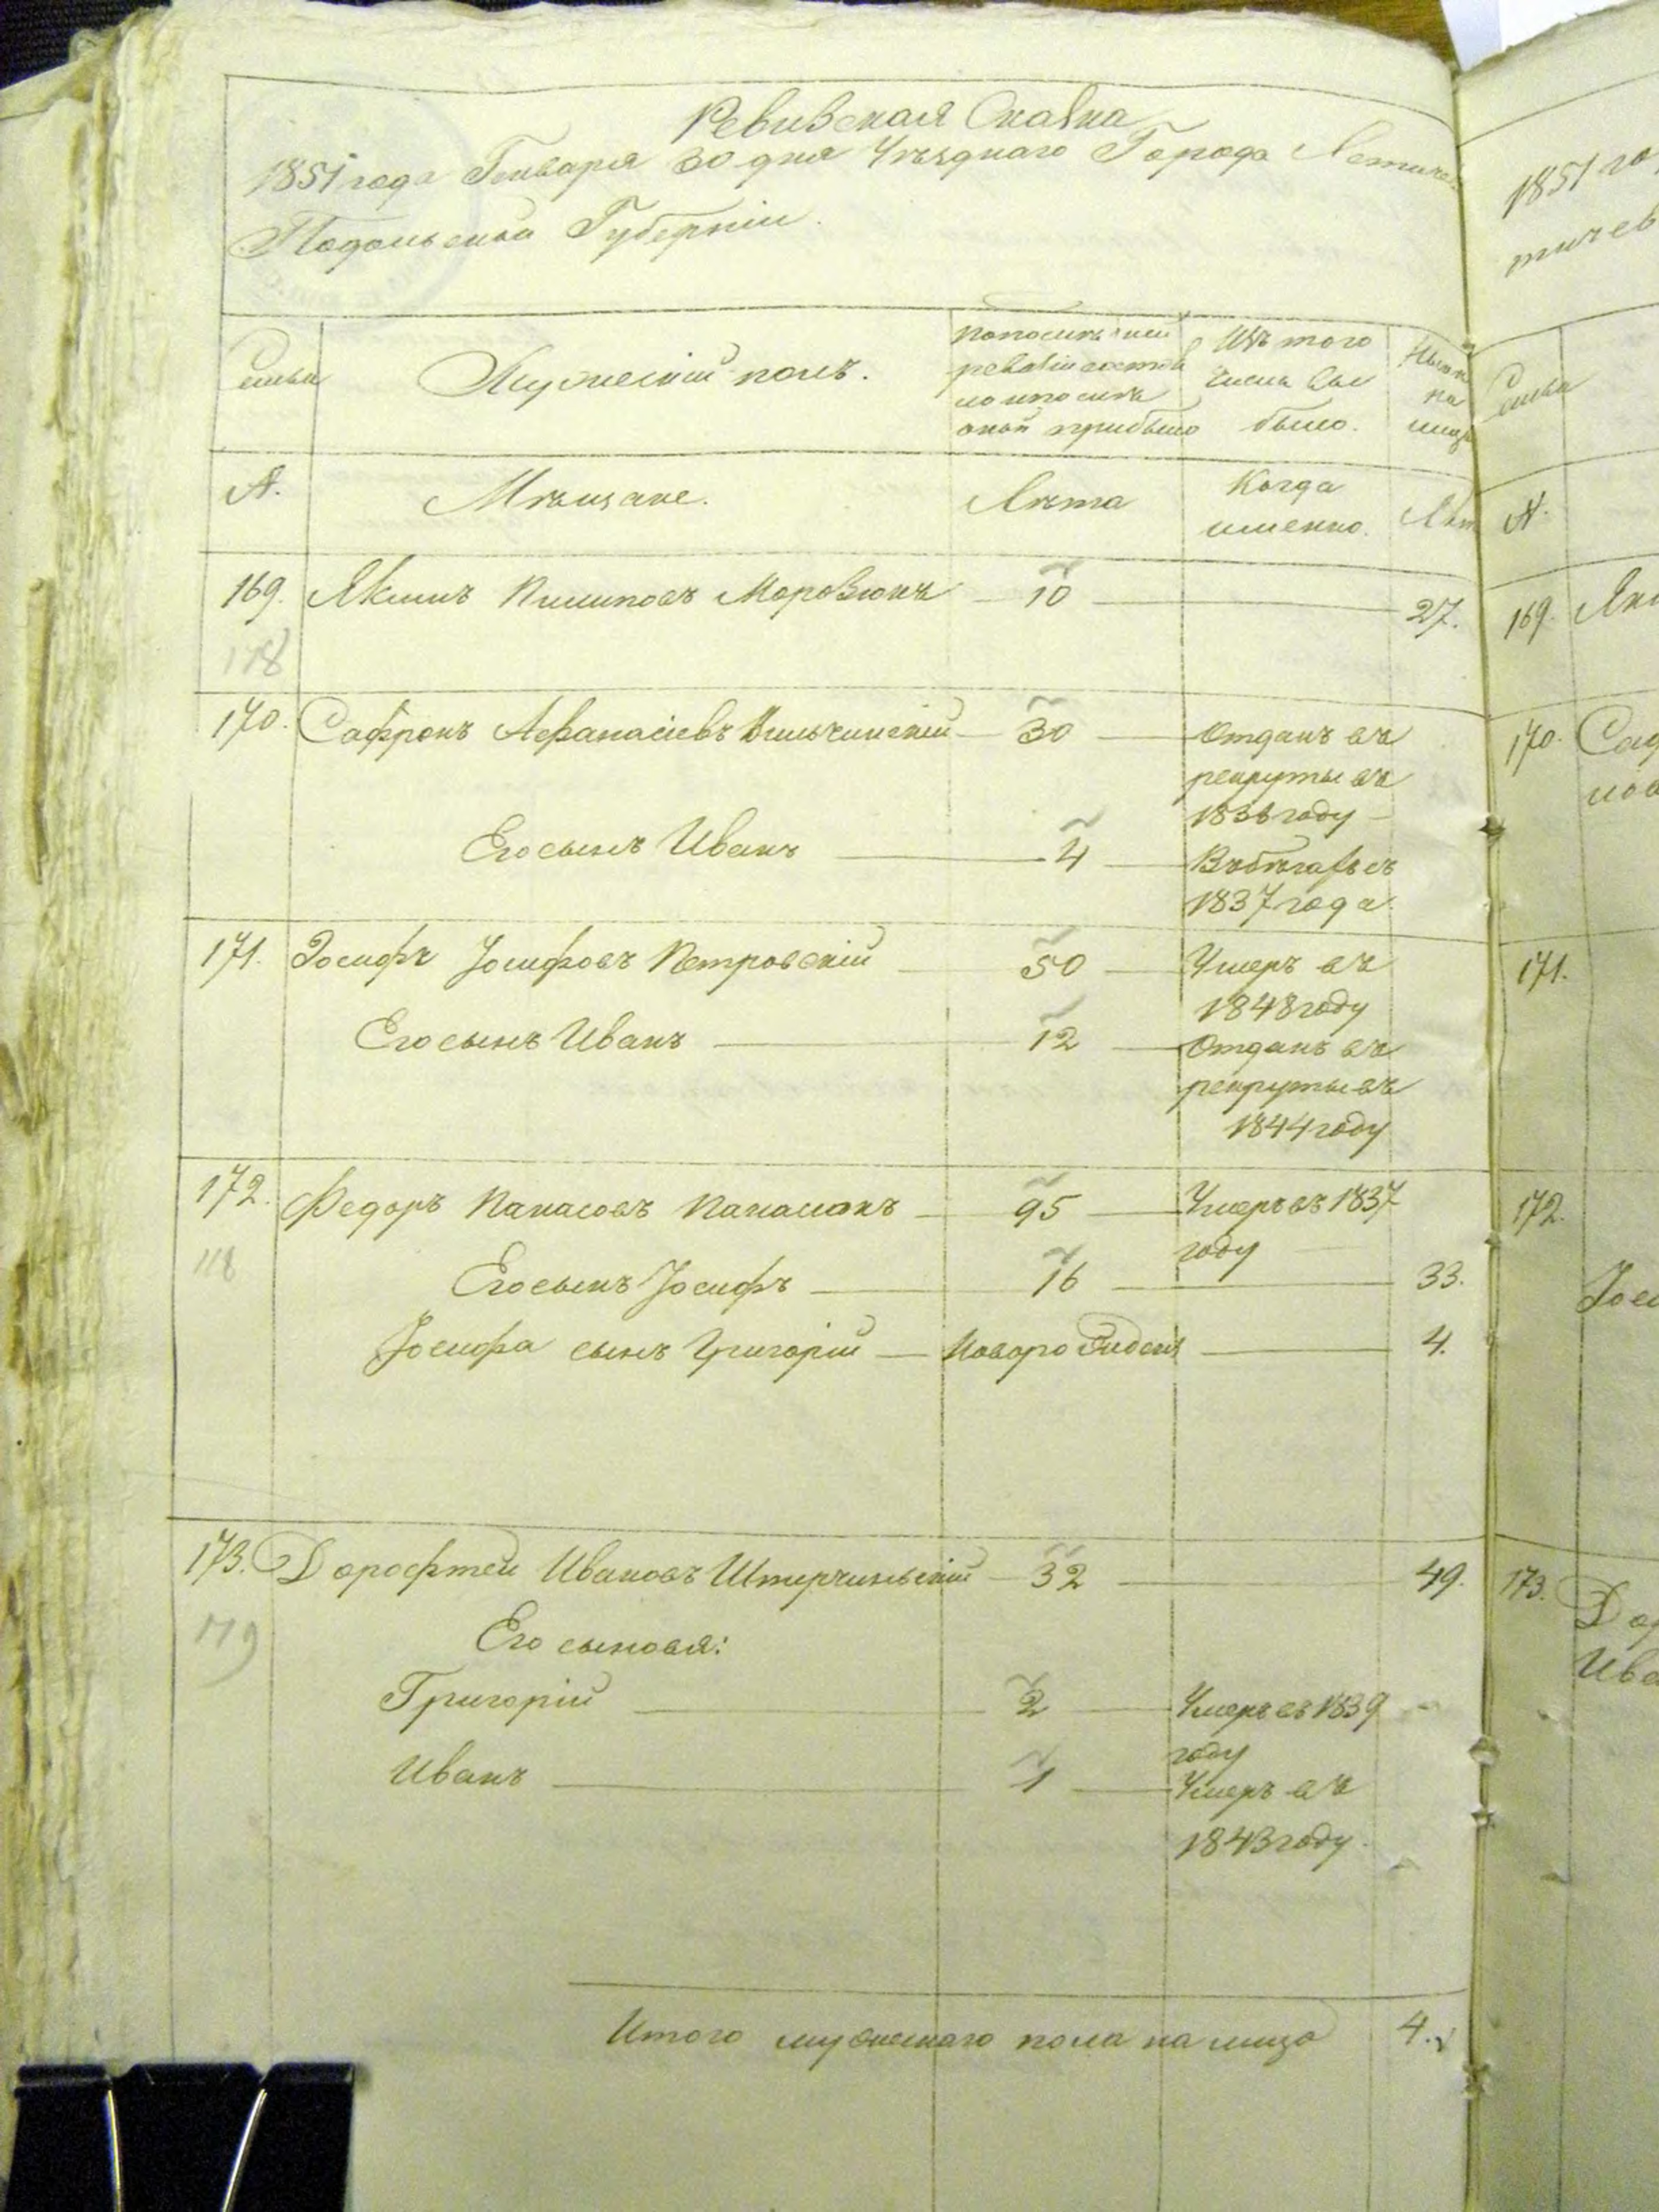 Ревизская Сказка
1851 года Генваря 30 дня Уѣзднаго Города Летиче
Подольской Губерніи.
Мужескій полъ.
По последней
ревизіи состоя
ло и после
оной прибыло
Изъ того
числа вы
было.
Ныне
на
лицо
Семьи
№.
Мѣщане.
Лѣта
Когда
именно.
Лѣт
169. Якимъ Пилиповъ Морозюкъ 10 27.
178
170. Сафронъ Афанасіевъ 30 Отданъ въ
рекруты въ
1836 году
Его сынъ Иванъ 4 Въ бѣгахъ съ
1837 года
171. Іосифъ Іосифовъ Петровскій 50 Умеръ въ
1848 году
Его сынъ Иванъ 12 Отданъ въ
рекруты въ
1844 году
172. Федоръ Панасовъ Панасюкъ 95 Умеръ въ 1837
году
118
Его сынъ Іосифъ 16 33.
Іосифа сынъ Григорій Новорожденъ 4.
173. Дорофтей Ивановъ Штырчиньскій 32 49.
179
Его сыновья:
Григорій 2 Умеръ въ 1839
году
Иванъ 1 Умеръ въ
1843 году.
Итого мужескаго пола на лицо 4.
1851 го
тичев
Семьи
№.
169. Яки
170. Саф
171.
172.
Іоси
173. Дор
Ива